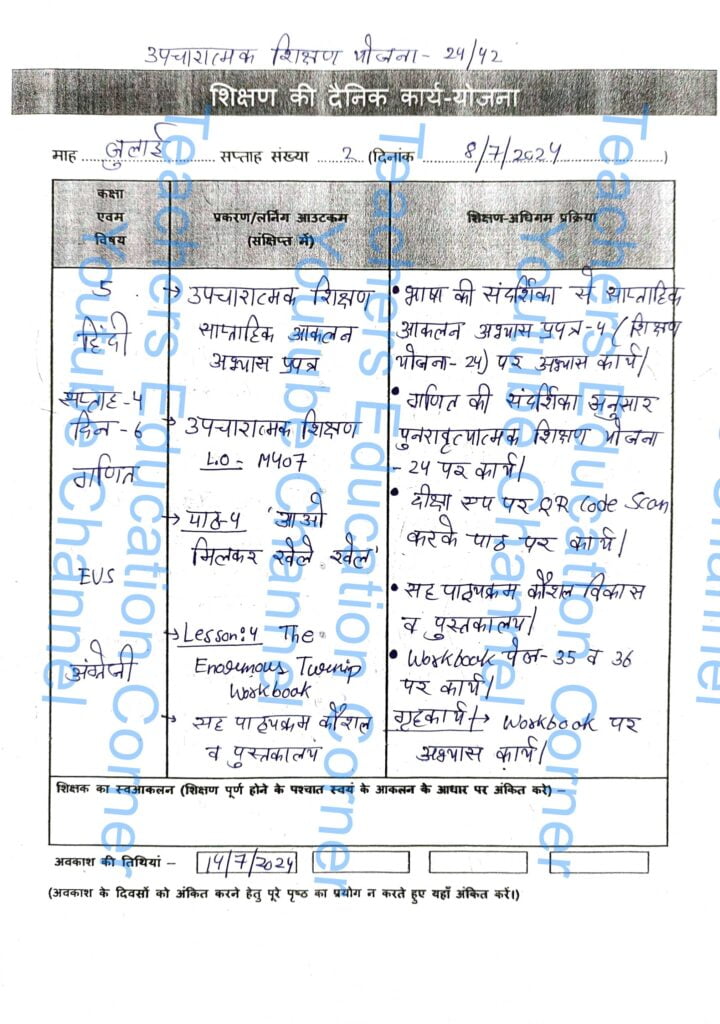 उपचारात्मक शिक्षण योजना- 24/42
शिक्षण की दैनिक कार्य-योजना
माह जुलाई सप्ताह संख्या 2 (दिनांक 8/7/2024)
कक्षा
एवम
विषय
प्रकरण/लर्निंग आउटकम
(संक्षिप्त में)
शिक्षण-अधिगम प्रक्रिया
5
हिंदी
सप्ताह-4
दिन-6
गणित
EVS
अंग्रेजी
→ उपचारात्मक शिक्षण
साप्ताहिक आकलन
अभ्यास प्रपत्र
→ उपचारात्मक शिक्षण
L.O- M407
→ पाठ-4 'आओ
मिलकर खेले खेल'
→ Lesson:4 The
Enormous Turnip
Workbook
→ सह पाठ्यक्रम कौशल
व पुस्तकालय
• भाषा की संदर्शिका से साप्ताहिक
आकलन अभ्यास प्रपत्र-4 (शिक्षण
योजना- 24) पर अभ्यास कार्य।
• गणित की संदर्शिका अनुसार
पुनरावृत्यात्मक शिक्षण योजना
-24 पर कार्य।
• दीक्षा एप पर QR Code Scan
करके पाठ पर कार्य।
• सह पाठ्यक्रम कौशल विकास
व पुस्तकालय।
• Workbook पेज- 35 व 36
पर कार्य।
गृहकार्य।→ Workbook पर
अभ्यास कार्य।
शिक्षक का स्वआकलन (शिक्षण पूर्ण होने के पश्चात स्वयं के आकलन के आधार पर अंकित करे) –
अवकाश की तिथियां – 14/7/2024
(अवकाश के दिवसों को अंकित करने हेतु पूरे पृष्ठ का प्रयोग न करते हुए यहाँ अंकित करें।)
Teachers Education Corner
Youtube Channel
Teachers Education Corner
Youtube Channel
Teachers Education Corner
Youtube Channel